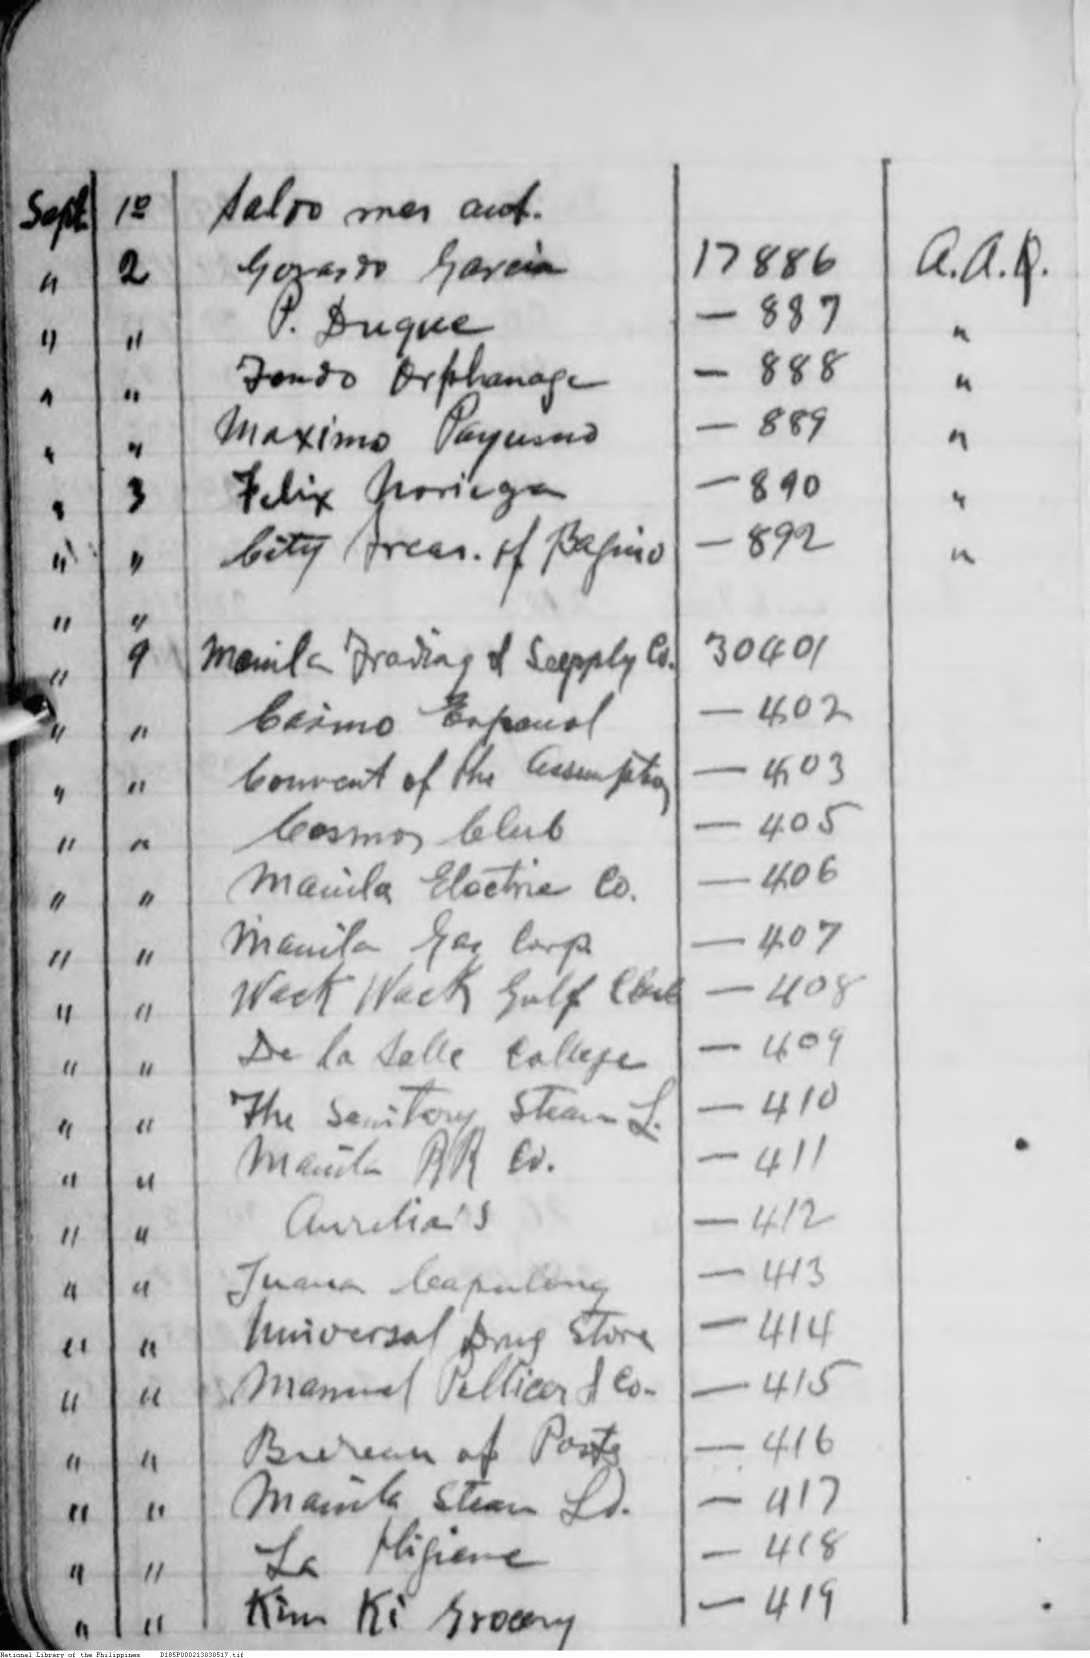 Sept 1º Saldo mes ant.
" 2 Gerardo Garcia 17886 A.A.R.
" " P. Duque — 887 "
" " Tondo Orphanage — 888 "
" " Maximo Payumo — 889 "
" 3 Felix Noriega — 890 "
" " City Treas. of Baguio — 892 "
" "
" 9 Manila Trading & Supply Co. 30401
" " Casino Español — 402
" " Convent of the Assumption — 403
" " Cosmos Club — 405
" " Manila Electric Co. — 406
" " Manila Gas Corp. — 407
" " Wack Wack Golf Club — 408
" " De la Salle College — 409
" " The Sanitary Steam L. — 410
" " Manila RR Co. — 411
" " Aurelia's — 412
" " Juana Capulong — 413
" " Universal Drug Store — 414
" " Manuel Pellicer & Co. — 415
" " Bureau of Posts — 416
" " Manila Steam Ld. — 417
" " La Higiene — 418
" " Kim Ki Grocery — 419
National Library of the Philippines D185P000213030517.tif